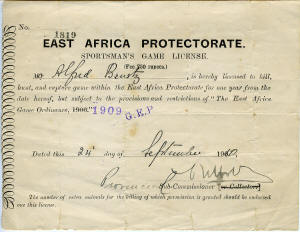 No. 1819
EAST AFRICA PROTECTORATE.
SPORTSMAN'S GAME LICENSE.
(Fee 750 rupees.)
Mr. Alfred is hereby licensed to kill,
hunt, and capture game within the East Africa Protectorate for one year from the
date hereof, but subject to the provisions and restrictions of "The East Africa
Game Ordinance, 1906."
1909 G.E.P
Dated this 24 day of September 190
Provincial Sub-Commissioner [or Collector]
The number of extra animals for the killing of which permission is granted should be endorsed
on this license.